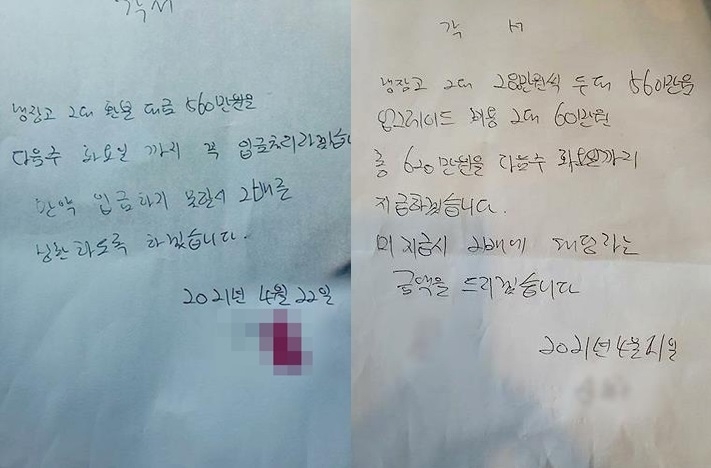 각서
냉장고 2대 환불 대금 560만원을
다음주 화요일 까지 꼭 입금처리하겠습니
만약 입금하지 못할시 2배를
상환하도록 하겠습니다.
2021년 4월 22일
각 서
냉장고 2대 280만원씩 두대 560만원
업그레이드 비용 2대 60만원
총 620만원을 다음주 화요일까지
지급하겠습니다.
미 지급시 2배에 해당하는
금액을 드리겠습니다
2021년 4월 21일